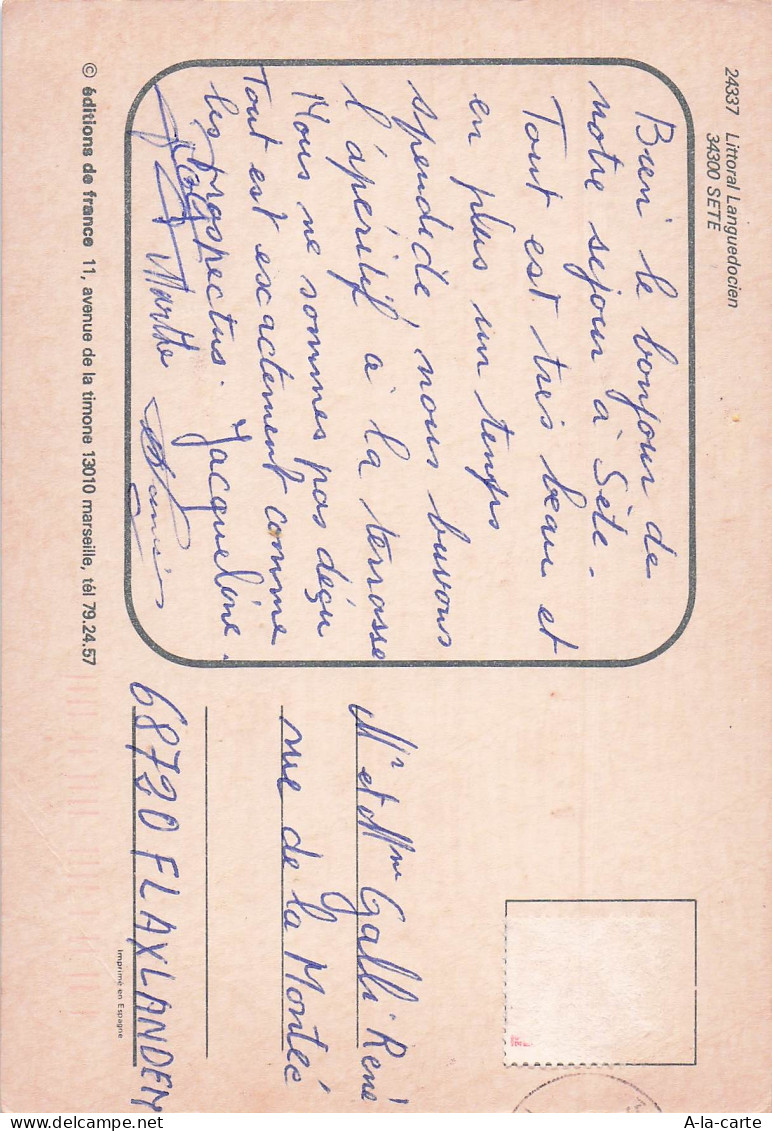 24337 Littoral Languedocien
34300 SETE
Bien le bonjour de
notre séjour à Sète.
Tout est très beau et
en plus un temps
spendide, nous buvons
l'apéritif à la terrasse
Nous ne sommes pas déçu
Tout est exactement comme
les prospectus. Jacqueline.
Marthe
© éditions de france 11, avenue de la timone 13010 marseille, tél 79.24.57
Mr et Mme Galli René
rue de la Montée
68720 FLAXLANDEN
Imprimé en Espagne
A-la-carte